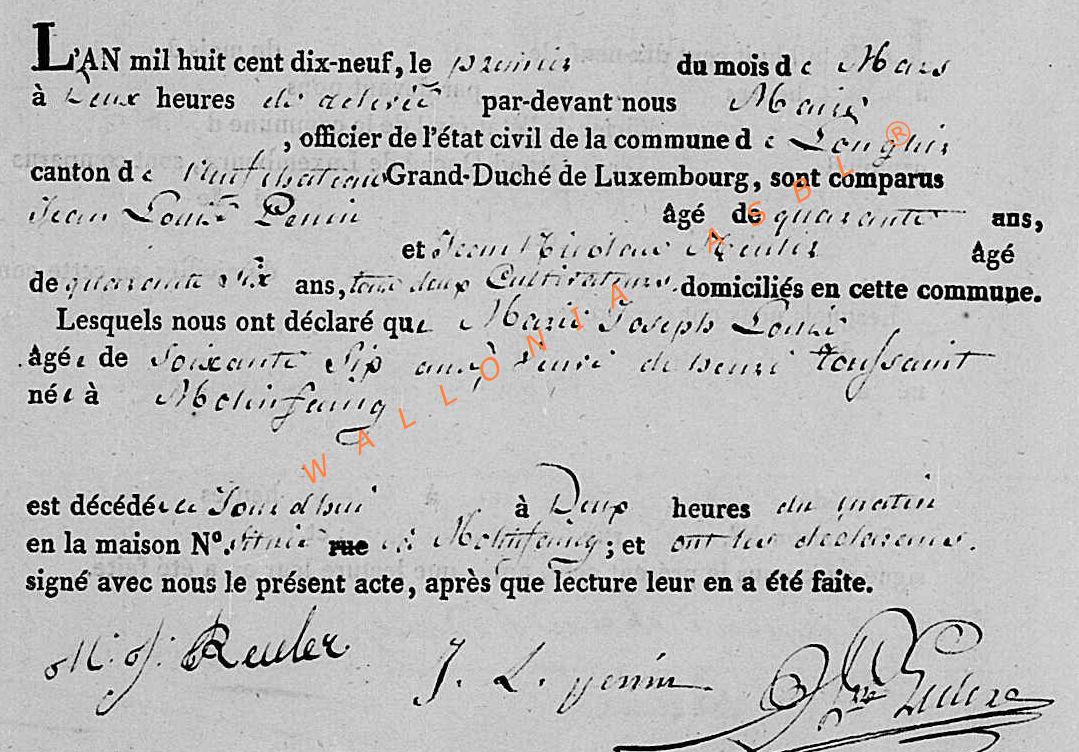 L'AN mil huit cent dix-neuf, le premier du mois de Mars
à Deux heures de relevée par-devant nous Maire
, officier de l'état civil de la commune de Longlier
canton de Neufchateau Grand-Duché de Luxembourg, sont comparus
Jean Louis Penin âgé de quarante ans,
et Jean Nicolas Reuler âgé
de quarante six ans, tous deux Cultivateurs domiciliés en cette commune.
Lesquels nous ont déclaré que Marie Joseph
âgée de Soixante Six ans, veuve de henri toussaint
née à Molinfaing
est décédée ce Jourdhui à Deux heures du matin
en la maison N° située rue à Molinfaing; et ont les declarans
signé avec nous le présent acte, après que lecture leur en a été faite.
Reuler J. L. penin
WALLONIA ASBL ®